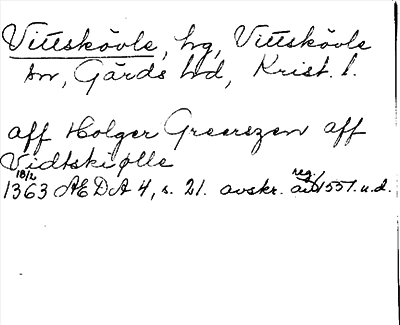 Vittskövle, hg, Vittskövle
sn, Gärds hd, Krist. l.
aff Holger Greerszen aff
Vidtskiølle
18/2 1363 ÆDA 4, s. 21. avskr. av reg. 1551. u.d.